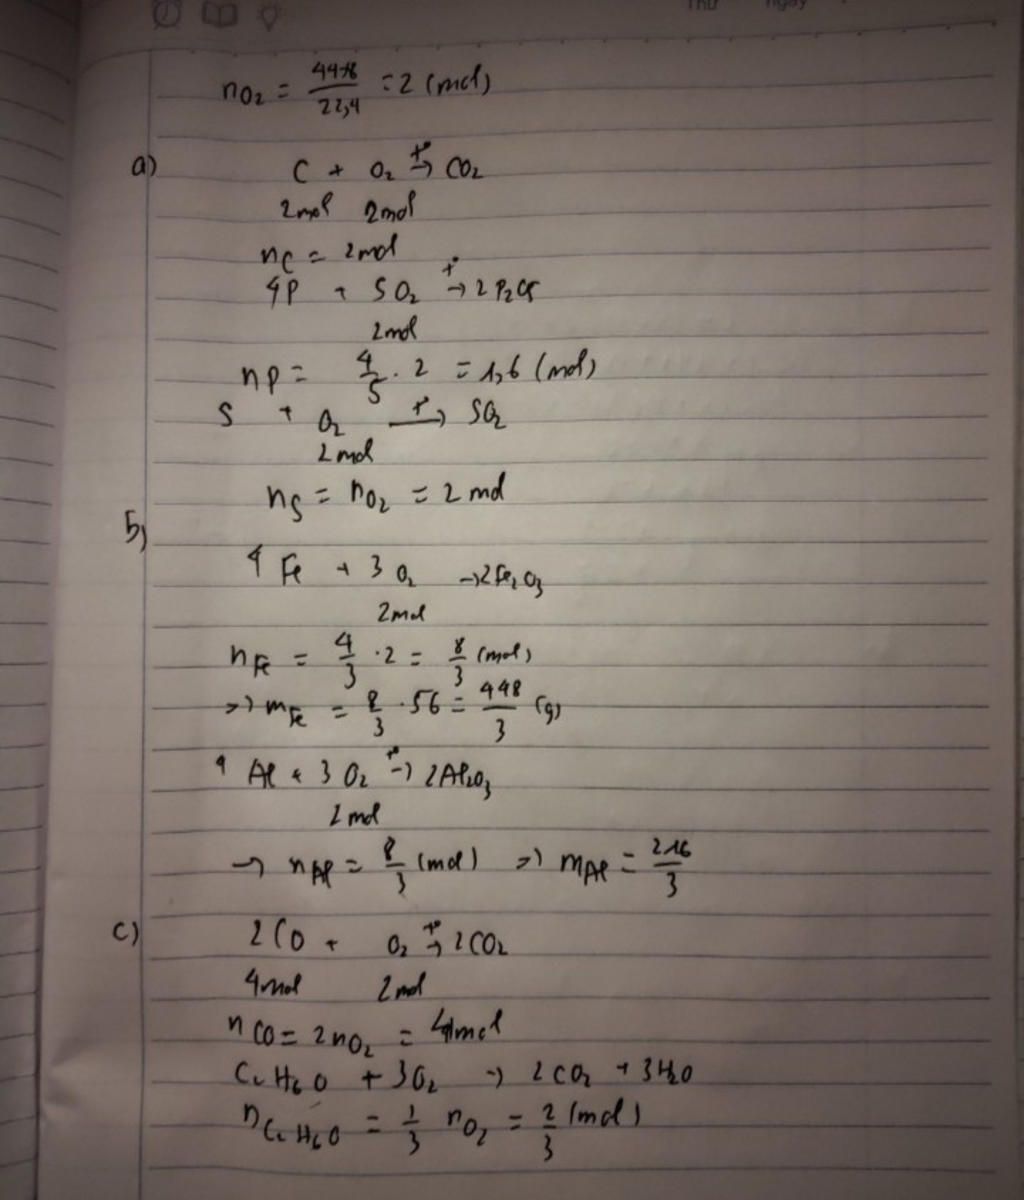 Thứ ngày
nO2 = 44,8/22,4 = 2 (mol)
a) C + O2 t°→ CO2
2mol 2mol
nC = 2mol
4P + 5O2 t°→ 2P2O5
2mol
nP = 4/5 . 2 = 1,6 (mol)
S + O2 t°→ SO2
2mol
nS = nO2 = 2mol
b)
4Fe + 3O2 → 2Fe2O3
2mol
nFe = 4/3 . 2 = 8/3 (mol)
=> mFe = 8/3 . 56 = 448/3 (g)
4Al + 3O2 t°→ 2Al2O3
2mol
→ nAl = 8/3 (mol) => mAl = 216/3
c) 2CO + O2 t°→ 2CO2
4mol 2mol
nCO = 2nO2 = 4mol
C2H6O + 3O2 → 2CO2 + 3H2O
nC2H6O = 1/3 nO2 = 2/3 (mol)